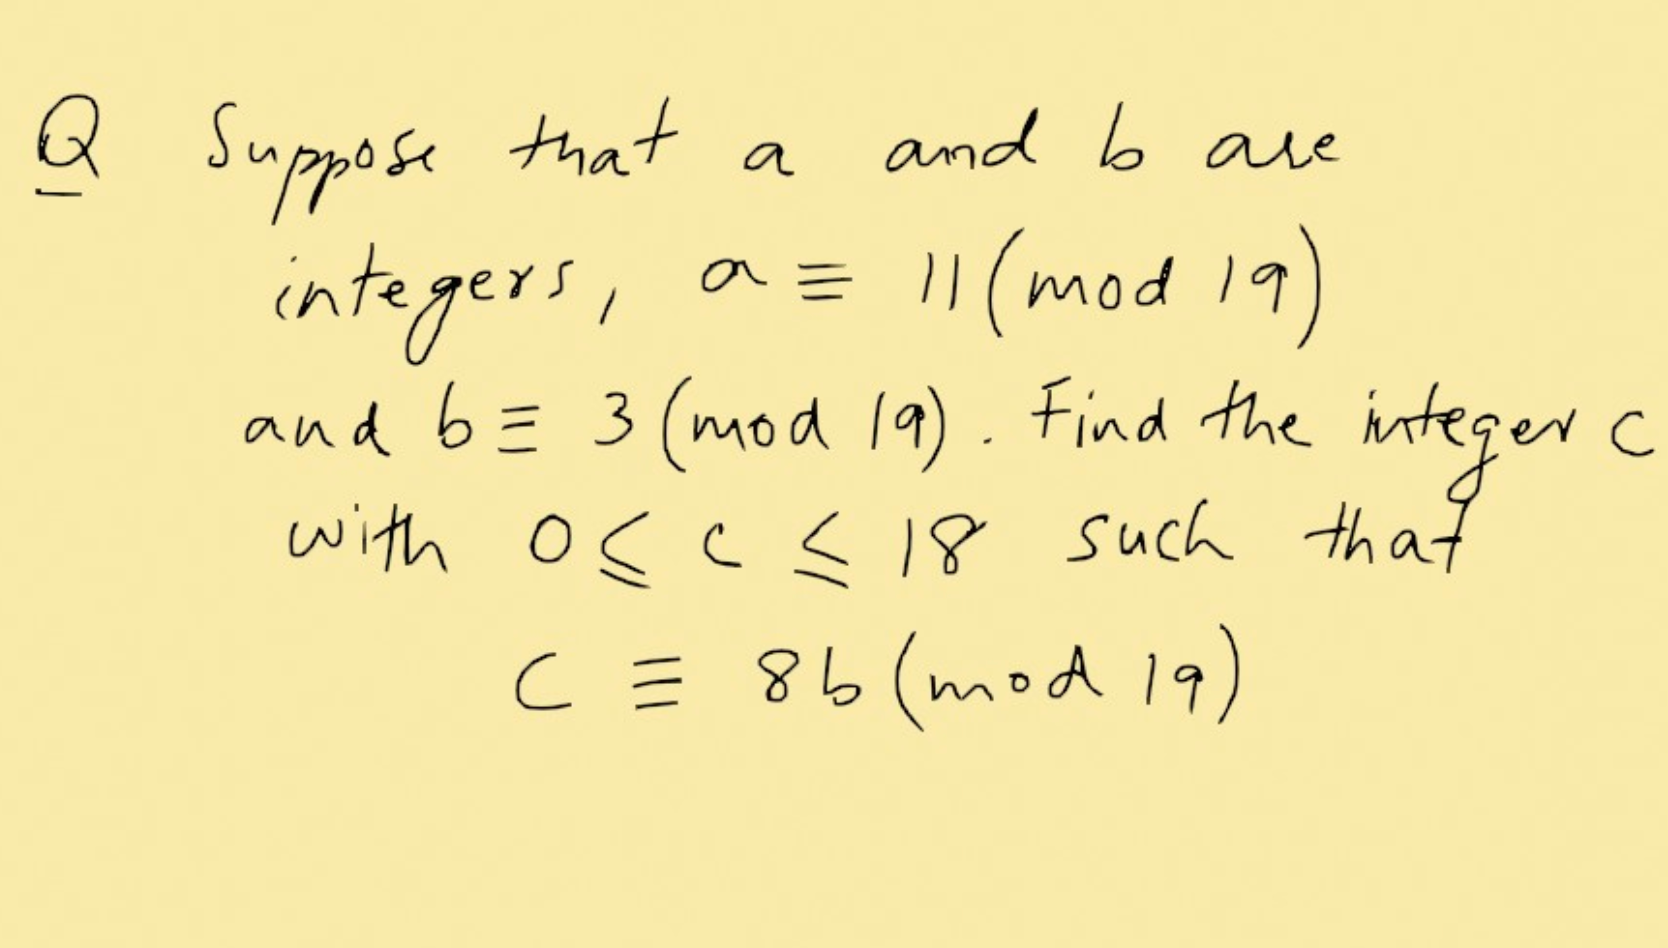 Q Suppose that a and b are
integers, a ≡ 11 (mod 19)
and b ≡ 3 (mod 19). Find the integer c
with 0 ≤ c ≤ 18 such that
C ≡ 8b (mod 19)